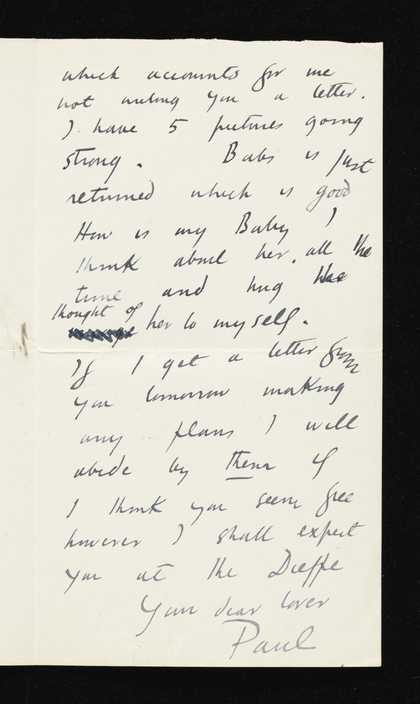 which accounts for me
not writing you a letter.
I have 5 pictures going
strong. Babs is just
returned which is good
How is my Baby I
think about her, all the
time and hug
thought of
her to myself.
If I get a letter from
you tomorrow making
any plans I will
abide by them if
I think you seem free
however I shall expect
you at the Dieppe
Your dear lover
Paul